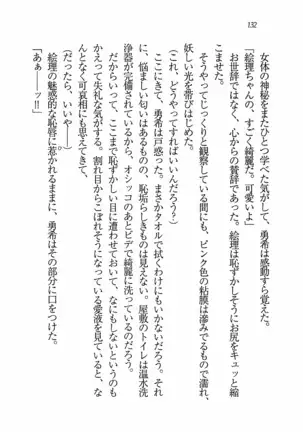 132
女体の神秘をまたひとつ学べた気がして、勇希は感動すら覚えた。
「絵理ちゃんの、すごく綺麗だ。可愛いよ」
お世辞ではなく、心からの賛辞であった。絵理は恥ずかしそうにお尻をキュッと縮
こませた。
そうやってじっくりと観察している間にも、ピンク色の粘膜は滲みでるもので濡れ、
妖しい光を帯びはじめた。
（これ、どうやってすればいいんだろう？）
ここにきて、勇希は戸惑った。まさかタオルで拭くわけにもいかないだろう。それ
に、悩ましい匂いはあるものの、恥垢らしきものは見えない。屋敷のトイレは温水洗
浄器が完備されているから、オシッコのあとビデで綺麗に洗っているのだろう。
だからといって、ここまで恥ずかしい目に遭わせておいて、なにもしないというの
もかえって失礼な気がする。割れ目からこぼれそうになっている愛液を見ていると、な
んとなく可哀相にも思えてきて、
（だったら、いいや――）
絵理の魅惑的な恥唇に惹かれるままに、勇希はその部分に口をつけた。
「あぁーッ!!」